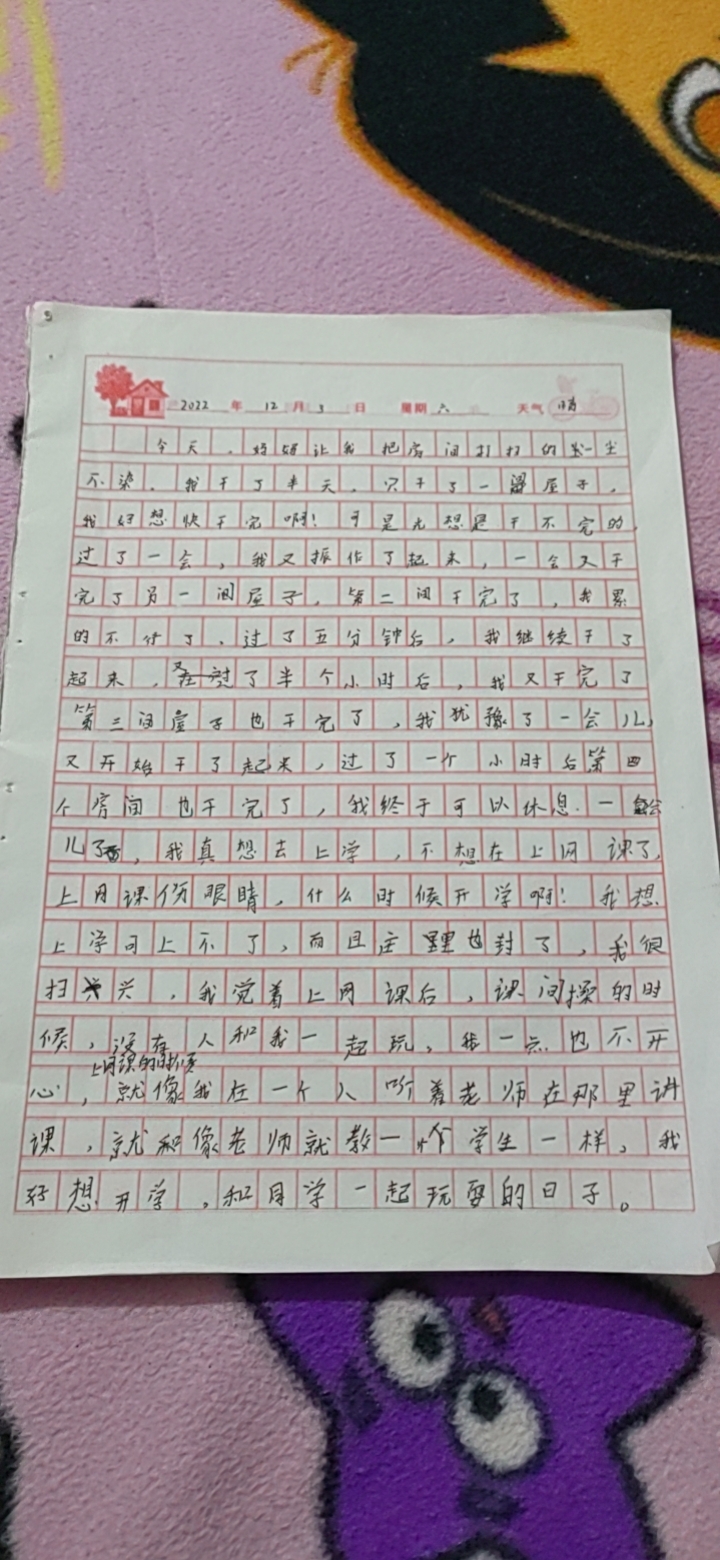 2022 年 12 月 3 日 星期 六 天气 晴
今天，妈妈让我把房间打扫的一尘
不染。我干了半天，只干了一屋子，
我好想快干完啊！可是光想是干不完的，
过了一会，我又振作了起来，一会又干
完了另一间屋子，第二间干完了，我累
的不行了，过了五分钟后，我继续干了
起来，又过了半个小时后，我又干完了
第三间屋子也干完了，我犹豫了一会儿，
又开始干了起来，过了一个小时后第四
个房间也干完了，我终于可以休息一会
儿了，我真想去上学，不想在上网课了，
上网课伤眼睛，什么时候开学啊！我想
上学可上不了，而且庄里也封了，我很
扫兴，我觉着上网课后，课间操的时
候，没有人和我一起玩，我一点也不开
心，上网课的时候就像我在一个人听着老师在那里讲
课，就和像老师就教一个学生一样，我
好想开学，和同学一起玩耍的日子。